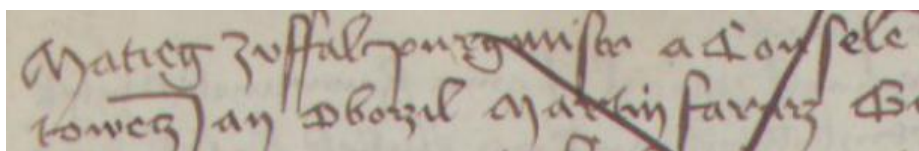 Matieg zuffal purgmistr a Conssele
towecz Jan Oborzil Martin fararz